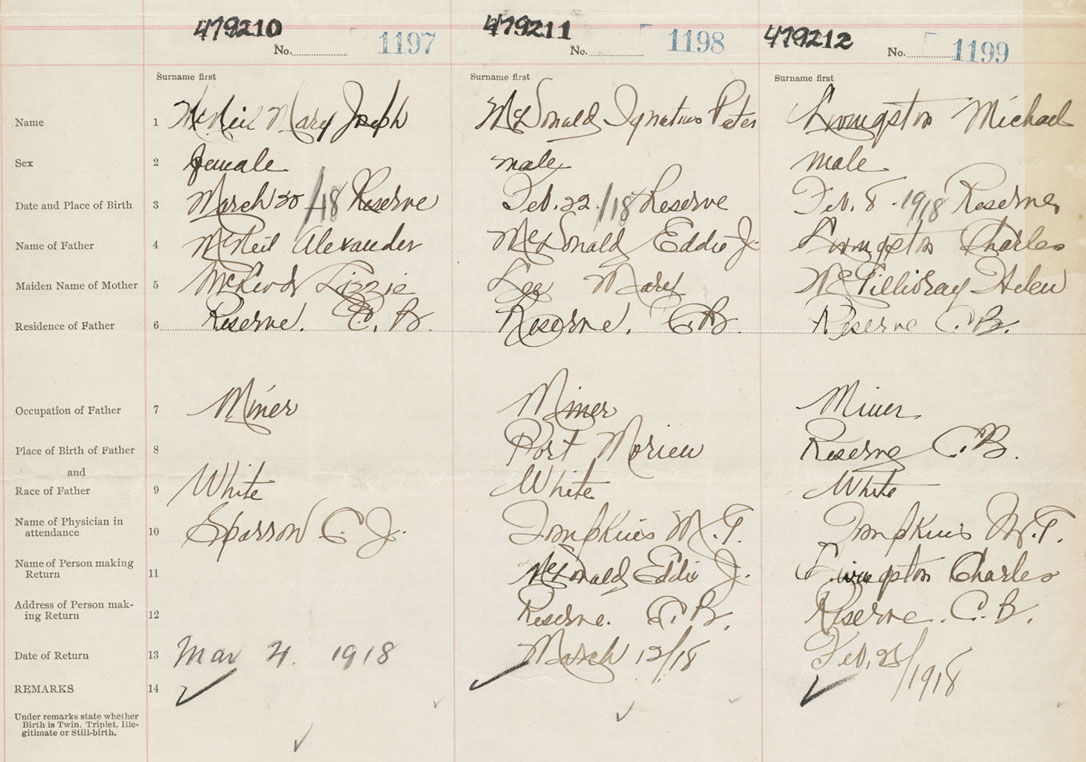 479210 479211 479212
No. 1197 No. 1198 No. 1199
Surname first Surname first Surname first
Name 1 McNeil Mary Joseph McDonald Ignatius Peter Livingston Michael
Sex 2 female male male
Date and Place of Birth 3 March 20/18 Reserve Feb. 22/18 Reserve Feb. 8 - 1918 Reserve
Name of Father 4 McNeil Alexander McDonald Eddie J. Livingston Charles
Maiden Name of Mother 5 McLeod Lizzie Lee Mary McGillivray Helen
Residence of Father 6 Reserve. C. B. Reserve, C.B. Reserve C.B.
Occupation of Father 7 Miner Miner Miner
Place of Birth of Father 8 Port Morien Reserve C.B.
and
Race of Father 9 White White White
Name of Physician in
attendance 10 Sparrow C. J. Tompkins M. T. Tompkins M. T.
Name of Person making
Return 11 McDonald Eddie J. Livingston Charles
Address of Person mak-
ing Return 12 Reserve. C. B. Reserve. C. B.
Date of Return 13 Mar 4. 1918 March 12/18 Feb. 23/1918
REMARKS 14
Under remarks state whether
Birth is Twin, Triplet, Ille-
gitimate or Still-birth.